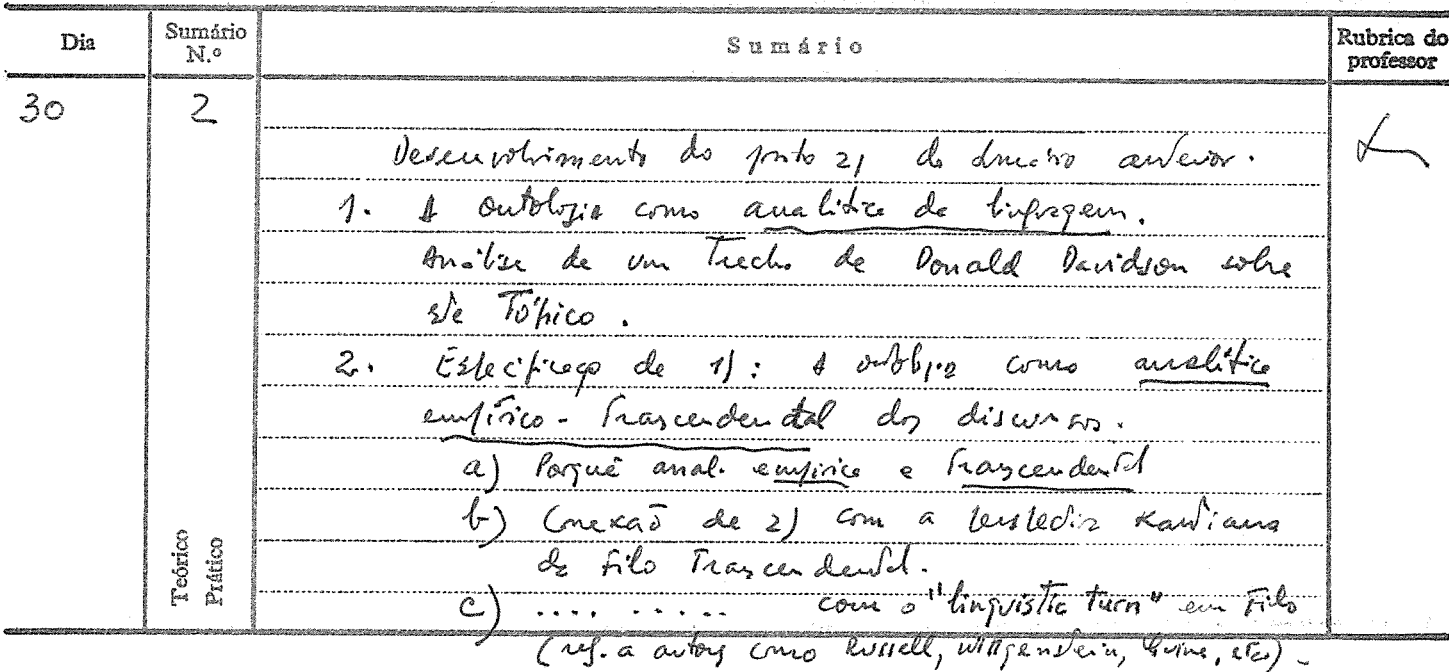 Dia
Sumário N.º
Sumário
Rubrica do professor
30
2
Desenvolvimento do ponto 2) do sumário anterior.
1. A ontologia como analítica da linguagem.
Análise de um Trecho de Donald Davidson sobre
este Tópico.
2. Especificação de 1): A ontologia como analítica
empírico-Trascendental dos discursos.
a) Porquê anal. empírica e Trascendental
b) Conexão de 2) com a Kantiana
de Filo Trascendental.
c) .... ..... com o "linguistic turn" em Filo
(ref. a autores como Russell, Wittgenstein, Quine, etc) -
Teórico
Prático